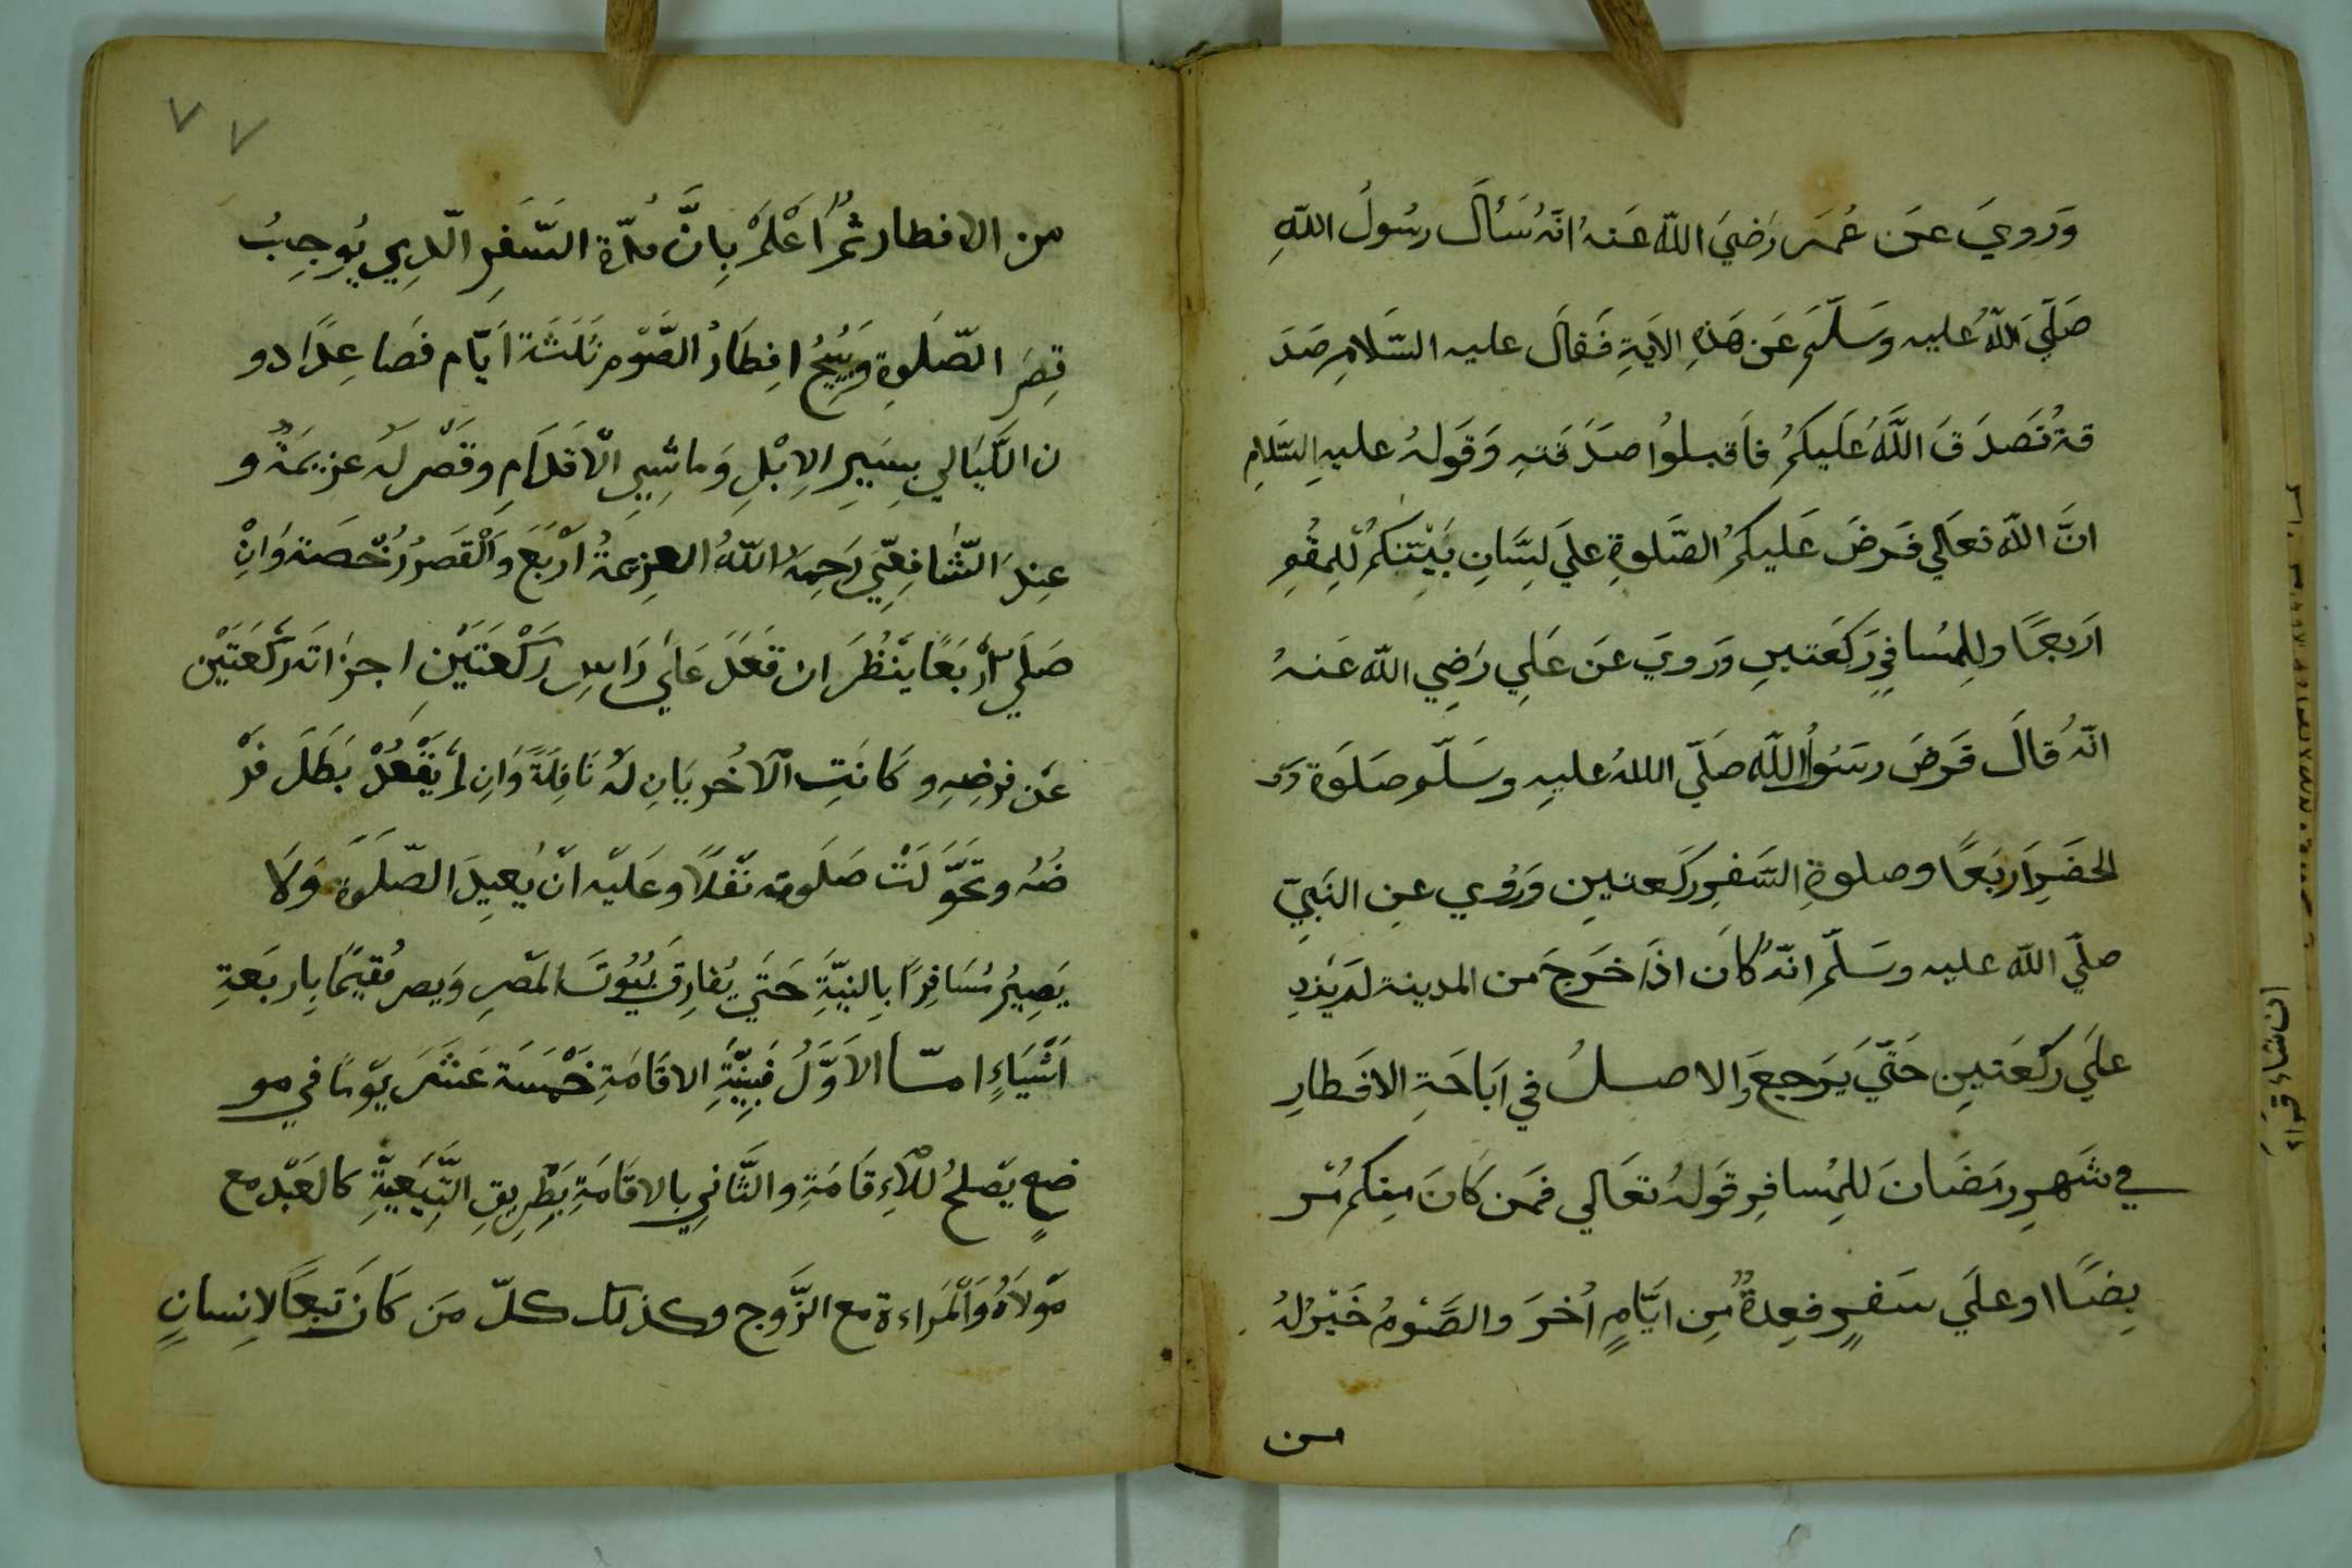 وَرويَ عَن عُمَر رَضيَ اللّه عَنهُ انّهُ سَألَ رسُولُ اللهِ
صَلَّي اللّهُ عليه وسَلّم عَن هَذِهِ الايَةِ فَقالَ عليه السّلامِ صَدَ
قة تُصَدقَ اللَّهُ عَلَيكُم فاَقبلوُا صدَقته وَقَولهُ عليهِ السّلامِ
انَّ اللّه تعَالي فَرضَ عَليكُم الصَّلوةِ علي لِسَانِ نَبيّكُم لِلمقُمِ
اَربعًا وللِمسُافِرِ رَكعَتينِ وَروي عَن عَلِي رَضِي اللّه عَنهُ
انّهُ قالَ فَرضَ رسَوُلُ اللّه صَلّي اللهُ عليهِ وسَلّم صلَوَة
الحضَرِ اَربَعًا وصلوةِ السَّفرِ ركَعتينِ وَرُوي عنِ النَبِيّ
صلّي اللّه عليه وسَلّم انّهُ كاَن اذَا خَرجَ من المدينة لَم يَزِدِ
علَي ركَعَتينِ حَتّي يَرجعَ وَالاصلُ في اَبَاحَةِ الافَطارِ
في شَهرِ رمَضَانَ للِمُسافرِ قَولهُ تعَالي فمَن كَانَ مِنكُم مَر
يِضًا او علَي سَفرٍ فعِدةٌ مِن ايَّامٍ اُخَرَ والصَّوْمُ خَيْر لهُ
من
من الافطار ثمُّ اَعْلَمْ بِانَّ مدّة السَّفَرِ الّذِي يُوجِبُ
قِصَر الصّلَوةِ وَيُبِيحُ افِطَارُ الصَّوْم ثَلَثَة اَيّام فصَاعِدًا دو
ن اللّيَالي بِسَيرِ الاِبْلِ وَماشِي الْاَقدَامِ وقَصْر لَه عزيمَةٌ و
عِندَ الشّافِعِيّ رَحِمَهُ اللّهُ العزِيمَةُ اَرْبَعَ وَالْقَصرُ رُخْصَة وَانْ
صَلّي اَرْبَعًا يَنْظُرَ ان قعَدَ عَلي رَاسِ رَكْعَتَيْنِ اجزاته ركْعَتَيْن
عَن فرضِهِ وكَانَتِ الْاُخْريَانِ لهُ نَافِلَةً وَانِ لم يَقْعُدْ بَطَلَ فَرْ
ضُهُ وتحَوَّلَتْ صَلَوته نَفْلاً وعَلَيْه اَن يُعِيدَ الصّلَوَة وَلاَ
يَصِيرُ مسَافِرًا بِالنِيّةِ حَتَي يُفارِقَ بُيُوتَ المَصرِ وَيصر مُقيمًا بِاربَعَةِ
اَشْيَاءٍ امّا الاَوَّلُ فَبِنِيّةِ الاقَامَةِ خَمْسَةَ عَشَرَ يَوْمًا في مو
ضِعٍ يَصْلحُ للْاِقَامَةِ والثَّانِي بالاقَامَةِ بِطَرِيقِ التَّبَعِيّةِ كالعَبْد مع
مَوْلَاهُ وَالْمَراءة مع الزَّوج وكذلك كلّ مَن كَانَ تَبعًا لاِنسانٍ
٧ ٧